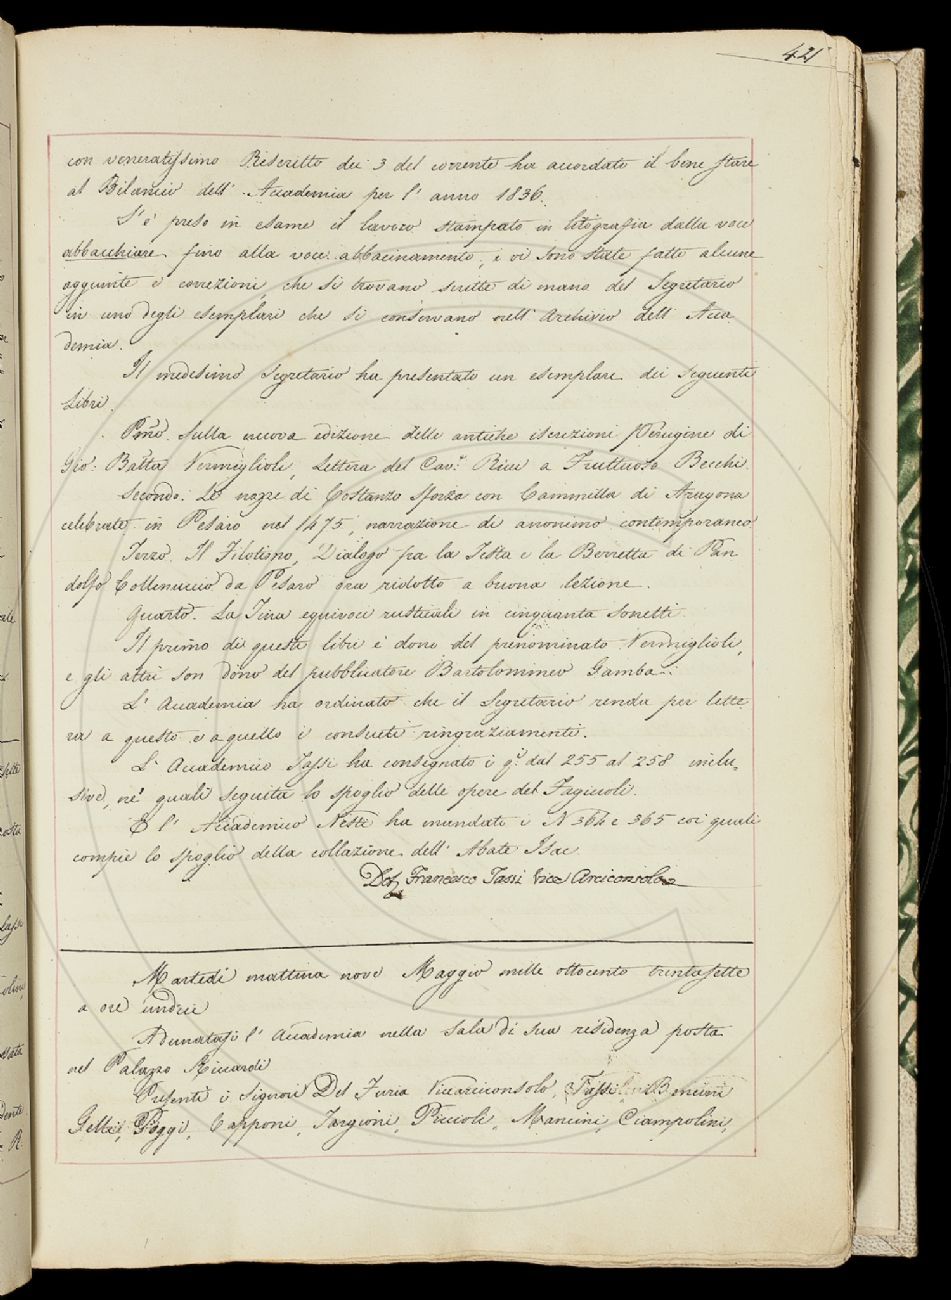 421
con veneratissimo Rescritto dei 3 del corrente ha accordato il bene stare
al Bilancio dell' Accademia per l' anno 1836.
S' è preso in esame il lavoro stampato in litografia dalla voce
abbacchiare fino alla voce abbacinamento, e vi sono state fatte alcune
aggiunte e correzioni, che si trovano scritte di mano del Segretario
in uno degli esemplari che si conservano nell' Archivio dell' Acca
demia.
Il medesimo Segretario ha presentato un esemplare dei seguenti
Libri.
Pmo. Sulla nuova edizione delle antiche iscrizioni Perugine di
Gio: Batta Vermiglioli, Lettera del Cav.e Ricci a Fruttuoso Becchi.
Secondo. Le nozze di Costanzo Sforza con Cammilla di Aragona
celebrate in Pesaro nel 1475, narrazione di anonimo contemporaneo
Terzo. Il Filotimo, Dialogo fra la Testa e la Berretta di Pan
dolfo Collenuccio da Pesaro ora ridotto a buona lezione.
Quarto. La Tina equivoci rusticali in cinquanta sonetti.
Il primo di questi libri è dono del prenominato Vermiglioli,
e gli altri son dono del pubblicatore Bartolommeo Gamba.
L' Accademia ha ordinato che il Segretario renda per lette
ra a questo e a quello i consueti ringraziamenti.
L' Accademico Tassi ha consegnato i q.i dal 255 al 258 inclu,
sive, ne' quali seguita lo spoglio delle opere del Fagiuoli.
E l' Accademico Nesti ha mandati i N 364 e 365 coi quali
compie lo spoglio della collazione dell' Abate Isac
Dot Francesco Tassi Vice Arciconsolo
Martedì mattina nove Maggio mille ottocento trentasette
a ore undici
Adunatasi l' Accademia nella sala di sua residenza posta
nel Palazzo Riccardi
Presenti i Signori Del Furia Vicearciconsolo, Tassi, Bencini
Gelli, Poggi, Capponi, Targioni, Piccioli, Mancini, Ciampolini,